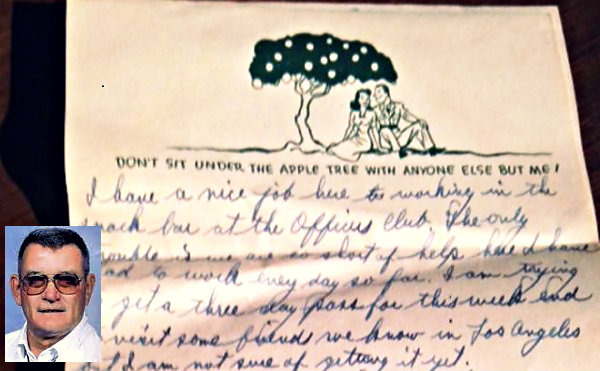 DON'T SIT UNDER THE APPLE TREE WITH ANYONE ELSE BUT ME!
I have a nice job here to working in the
snack bar at the Officers Club. The only
trouble is we are so short of help here I have
had to work every day so far. I am trying
get a three day pass for this week end
visit some friend we know in Los Angeles
but I am not sure of getting it yet.